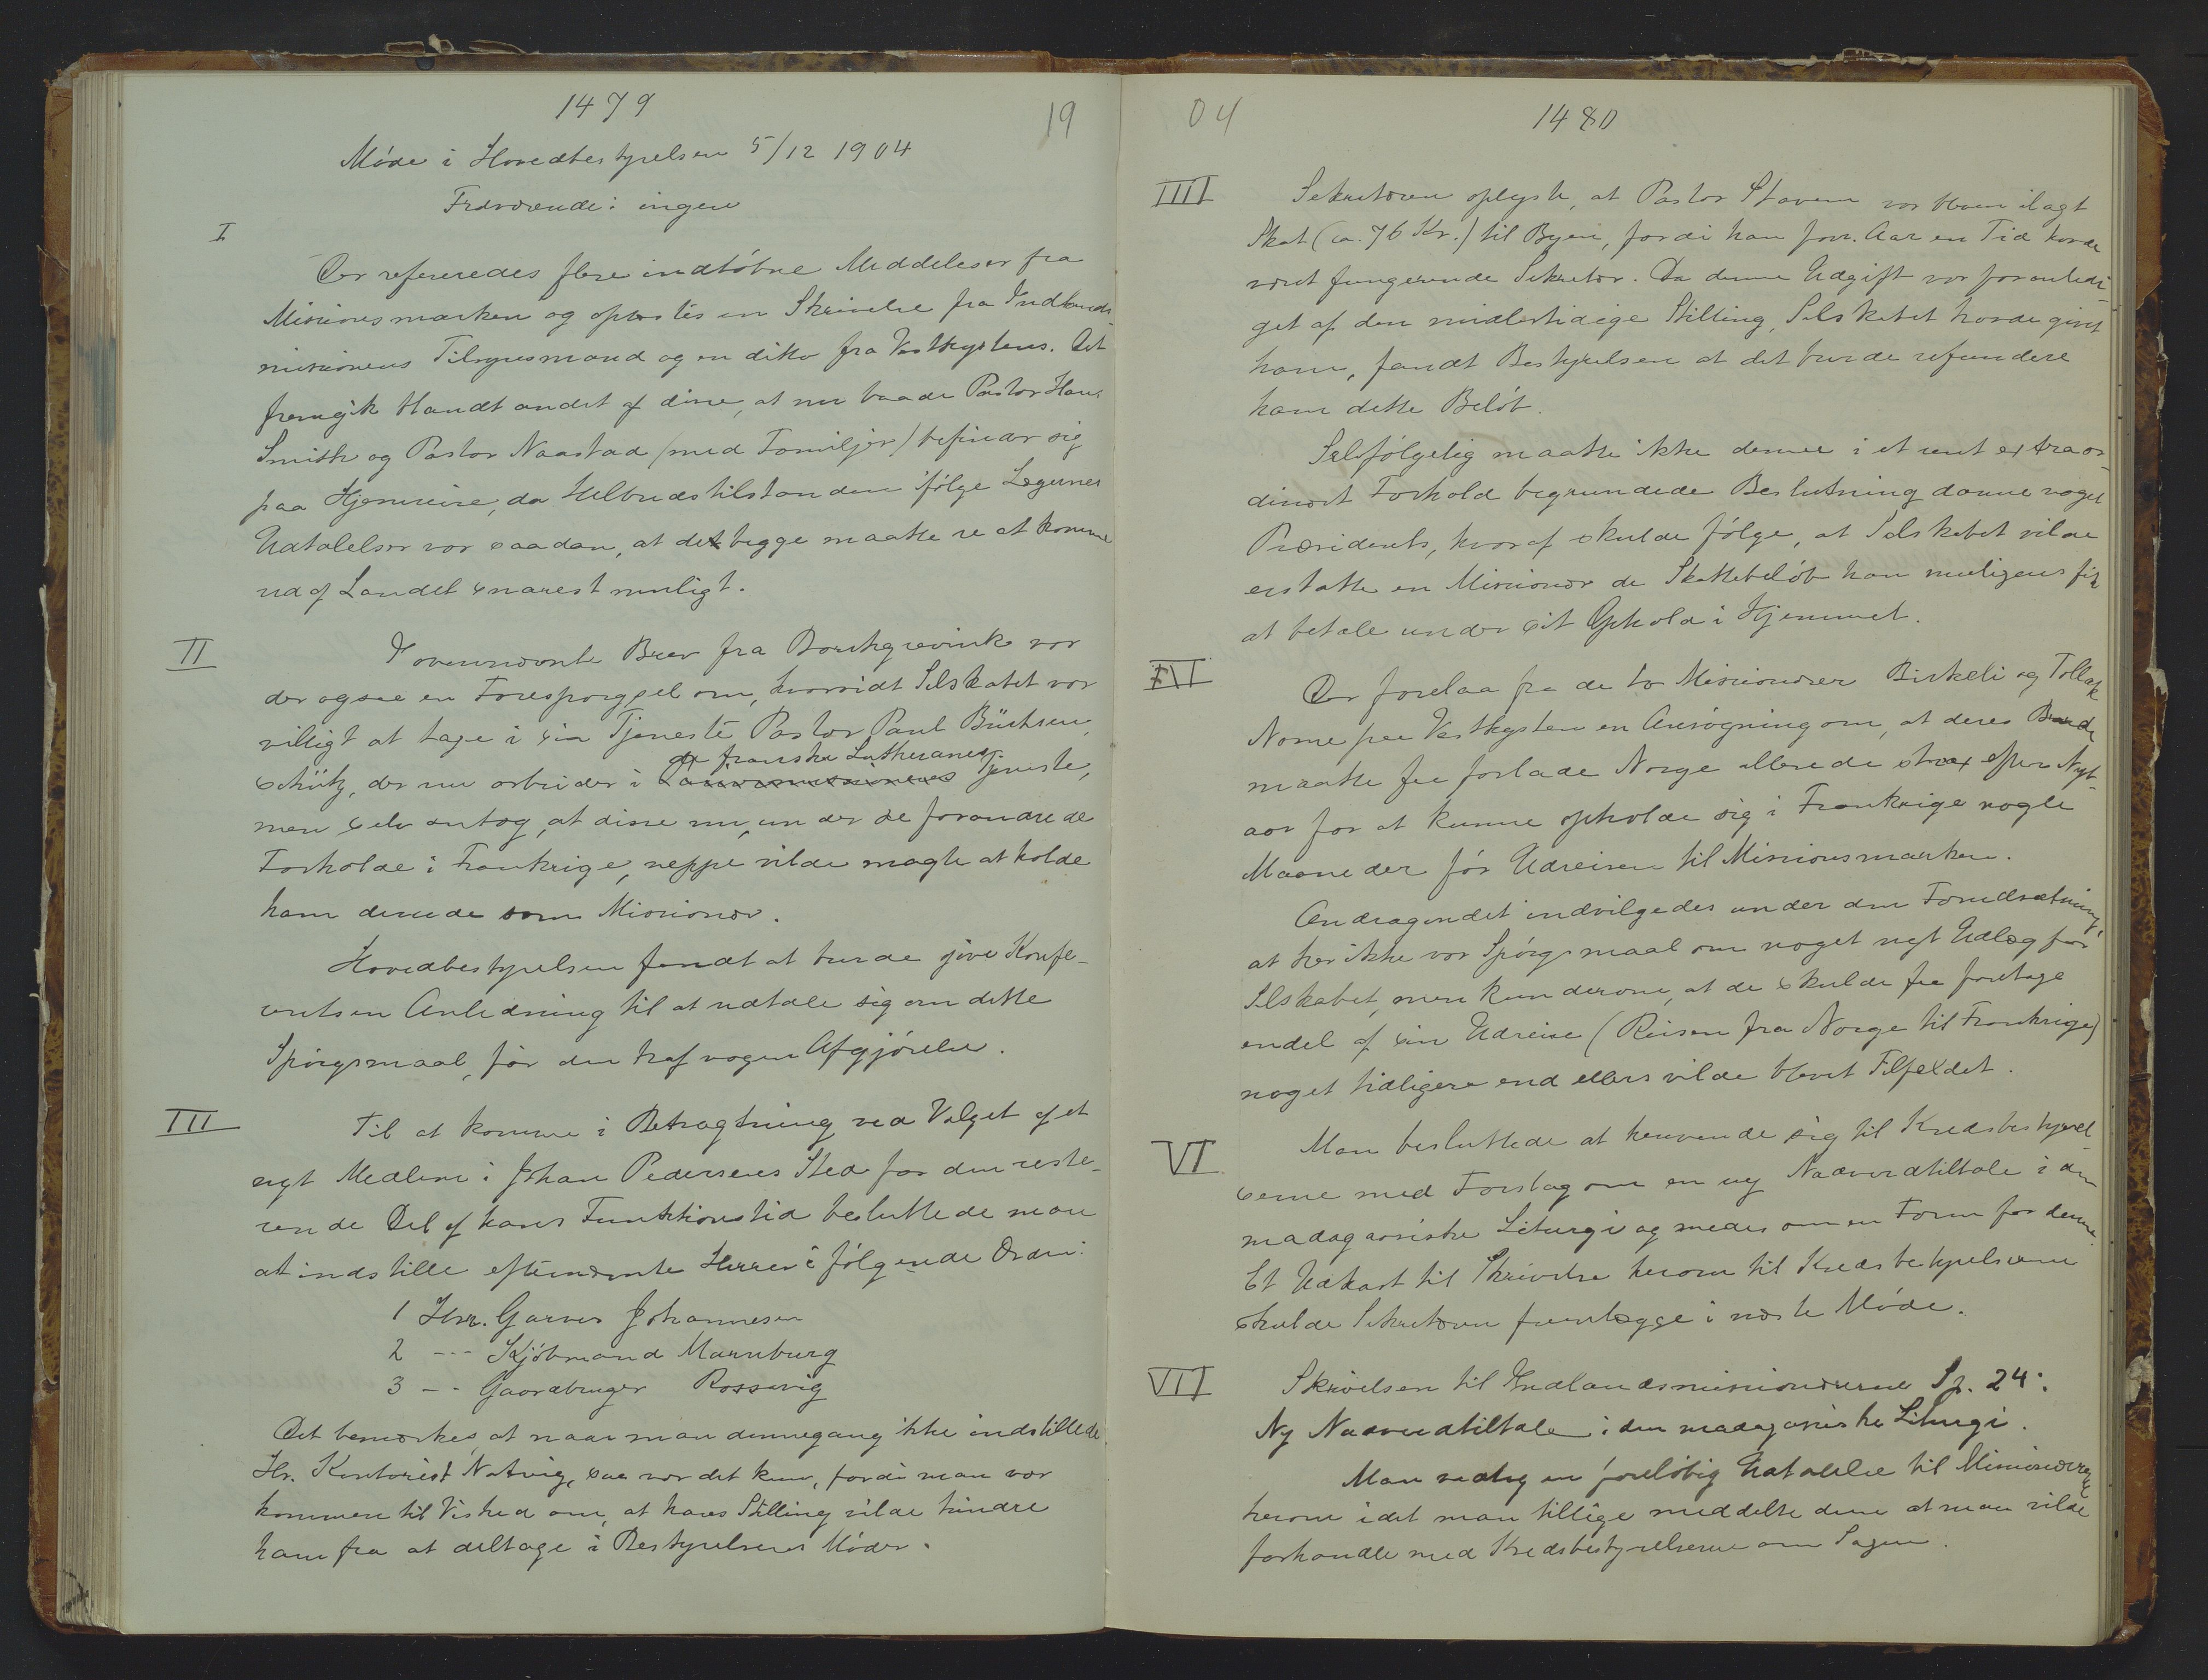 1479
19
Møde i Hovedbestyrelsen 5/12 1904
Fraværende: ingen
I
Der refereredes flere indløbne Meddelelser fra
Missionsmarken og oplæstes en Skrivelse fra Indlands-
missionens Tilsynsmand og en ditto fra Vestkystens. Det
fremgik blandt andet af disse, at nu baade Pastor Hans
Smith og Pastor Naastad (med Familjer) befinder sig
paa Hjemreise, da Helbredstilstanden ifølge Lægernes
Udtalelser var saadan, at de begge maatte se at komme
ud af Landet snarest muligt.
II
I ovennævnte Brev fra Borchgrevink var
der ogsaa en Forespørgsel om, hvorvidt Selskabet var
villigt at tage i sin Tjeneste Pastor Paul Büchsen-
de franske Lutheraneres
schütz, der nu arbeider i Tjeneste,
men selv antog, at disse nu, under de forandrede
Forholde i Frankrige, neppe vilde magte at holde
ham derude som Missionær.
Hovedbestyrelsen fandt at burde give Konfe-
rentsen Anledning til at udtale sig om dette
Spørgsmaal, før den traf nogen Afgjørelse.
III
Til at komme i Betragtning ved Valget af et
nyt Medlem i Johan Pedersens Sted for den reste-
rende Del af hans Funktionstid besluttede man
at indstille efternævnte Herrer i følgende Orden:
1 Hrr. Garver Johannesen
2 --- Kjøbmand Marnburg
3 -- Gaardbruger Rossavig
Det bemærkes, at naar man dennegang ikke indstillede
Hr. Kontorist Natvig, saa var det kun, fordi man var
kommen til Vished om, at hans Stilling vilde hindre
ham fra at deltage i Bestyrelsens Møder.
04
1480
IIII
Sekretæren oplyste, at Pastor Stavem var bleven ilagt
Skat (ca. 76 Kr.) til Byen, fordi han forr. Aar en Tid havde
været fungerende Sekretær. Da denne Udgift var foranledi-
get af den midlertidige Stilling, Selskabet havde givet
ham, fandt Bestyrelsen at det burde refundere
ham dette Beløb.
Selvfølgelig maatte ikke denne i et rent extraor-
dinært Forhold begrundede Beslutning danne noget
Præsidents, hvoraf skulde følge, at Selskabet vilde
erstatte en Missionær de Skattebeløb han muligens fik
at betale under sit Ophold i Hjemmet.
V
Der forelaa fra de to Missionærer Birkeli og Tollak
Nome paa Vestkysten en Ansøgning om, at deres Brude
maatte faa forlade Norge allerede strax efter Nyt-
aar for at kunne opholde sig i Frankrige nogle
Maaneder før Udreisen til Missionsmarken.
Andragendet indvilgedes under den Forudsætning,
at her ikke var Spørgsmaal om noget nyt Udlæg for
Selskabet, men kun derom, at de skulde faa foretage
endel af sin Udreise (Reisen fra Norge til Frankrige)
noget tidligere end ellers vilde blevet Tilfeldet.
VI
Man besluttede at henvende sig til Kredsbestyrel-
serne med Forslag om en ny Nadverdtiltale i den
madagassiske Liturgi og medes om en Form for denne.
Et Udkast til Skrivelse herom til Kredsbestyrelserne
skulde Sekretæren fremlægge i næste Møde.
VII
Skrivelsen til Indlandsmissionærerne Sp. 24:
Ny Nadverdtiltale i den madagassiske Liturgi.
Man vedtog en foreløbig Udtalelse til Missionærerne
herom idet man tillige meddelte dem at man vilde
forhandle med Kredsbestyrelserne om Sagen.